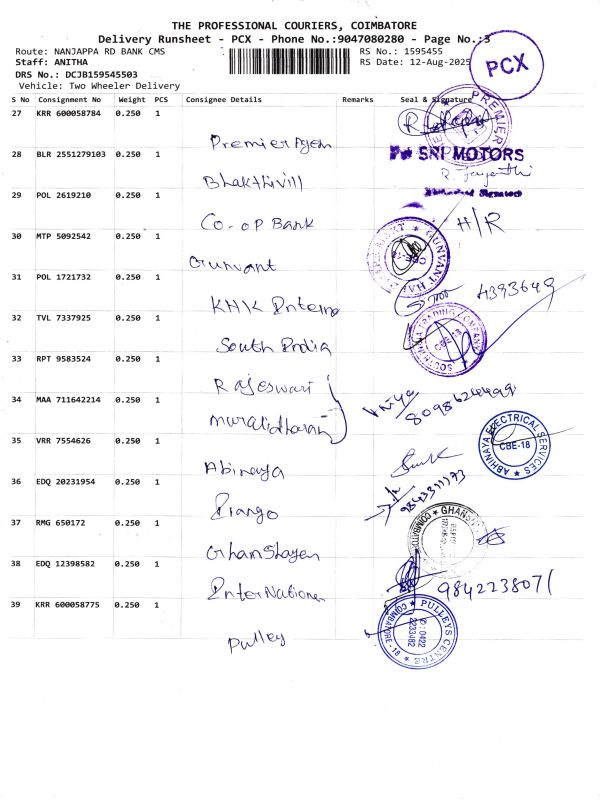 THE PROFESSIONAL COURIERS, COIMBATORE
Delivery Runsheet - PCX - Phone No.:9047080280 - Page No.:3
Route: NANJAPPA RD BANK CMS
RS No.: 1595455
Staff: ANITHA
RS Date: 12-Aug-2025
PCX
DRS No.: DCJB159545503
Vehicle: Two Wheeler Delivery
S No Consignment No Weight PCS Consignee Details Remarks Seal & Signature
27 KRR 600058784 0.250 1
Premier Agen
PREMIER
28 BLR 2551279103 0.250 1
SRI MOTORS
Bhakthivill
R. Jayanthi
29 POL 2619210 0.250 1
Co-op Bank
H/R
30 MTP 5092542 0.250 1
Gunvant
GUNVANT
31 POL 1721732 0.250 1
KHK Interno
4393649
32 TVL 7337925 0.250 1
South India
SOUTH INDIA TRADING COMPANY
CBE-18
33 RPT 9583524 0.250 1
Rajeswari
34 MAA 711642214 0.250 1
Muralidharan
35 VRR 7554626 0.250 1
Abinaya
ABHINAYA ELECTRICAL SERVICES
CBE-18
36 EDQ 20231954 0.250 1
9843311173
37 RMG 650172 0.250 1
Ghanshayam
COIMBATORE
38 EDQ 12398582 0.250 1
International
9842238071
39 KRR 600058775 0.250 1
Pulley
PULLEYS CENTRE
COIMBATORE - 18
O : 0422
2233482